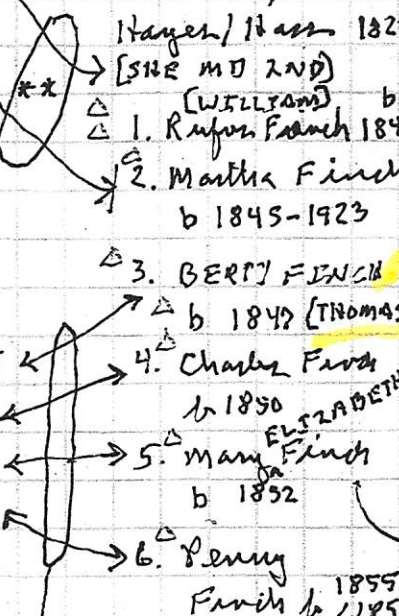 Hayes/Hass 182
[SHE MD 2ND]
** [WILLIAM] b
1. Rufus Finch 184
2. Martha Finch
b 1845-1923
3. BERTY FINCH
b 1847 [THOMAS
4. Charles Finch
b 1850
ELIZABETH
5. Mary Finch
b 1852
6. Penny
1855
Finch b 185